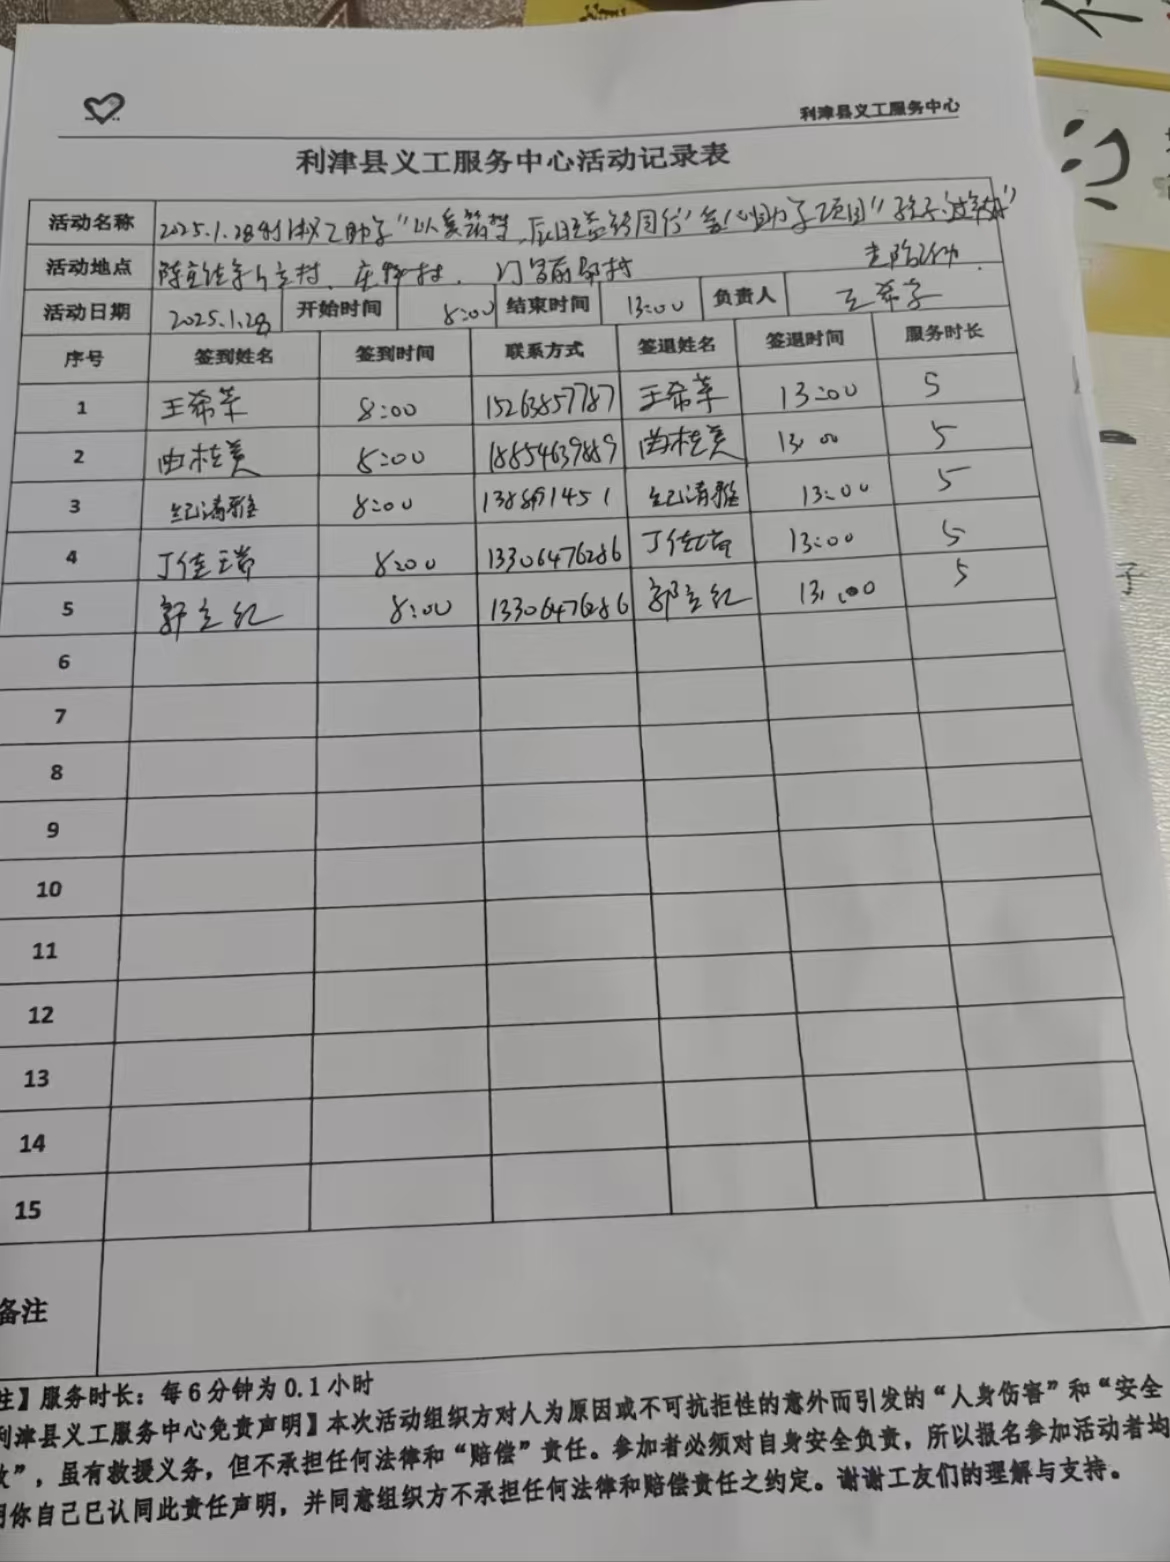 利津县义工服务中心
利津县义工服务中心活动记录表
活动名称 2025.1.28利津义工助学“以爱筑梦
活动地点 陈庄镇
活动日期 2025.1.28 开始时间 8:00 结束时间 13:00 负责人 王希
序号 签到姓名 签到时间 联系方式 签退姓名 签退时间 服务时长
1 王希苹 8:00 15263857787 王希苹 13:00 5
2 曲桂美 8:00 18854639889 曲桂美 13:00 5
3 纪清雅 8:00 纪清雅 13:00 5
4 丁佳瑞 8:00 13306476286 丁佳 13:00 5
5 郭立红 8:00 13306476286 郭立红 13:00 5
6
7
8
9
10
11
12
13
14
15
备注
注】服务时长：每6分钟为0.1小时
利津县义工服务中心免责声明】本次活动组织方对人为原因或不可抗拒性的意外而引发的“人身伤害”和“安全
”，虽有救援义务，但不承担任何法律和“赔偿”责任。参加者必须对自身安全负责，所以报名参加活动者均
明你自己已认同此责任声明，并同意组织方不承担任何法律和赔偿责任之约定。谢谢工友们的理解与支持。